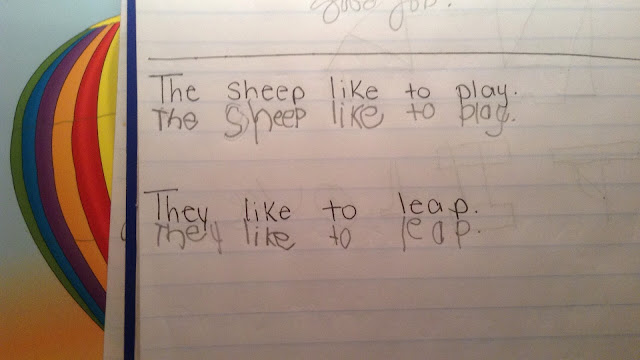 good job.
The sheep like to play.
The Sheep like to play.
They like to leap.
They like to leap.